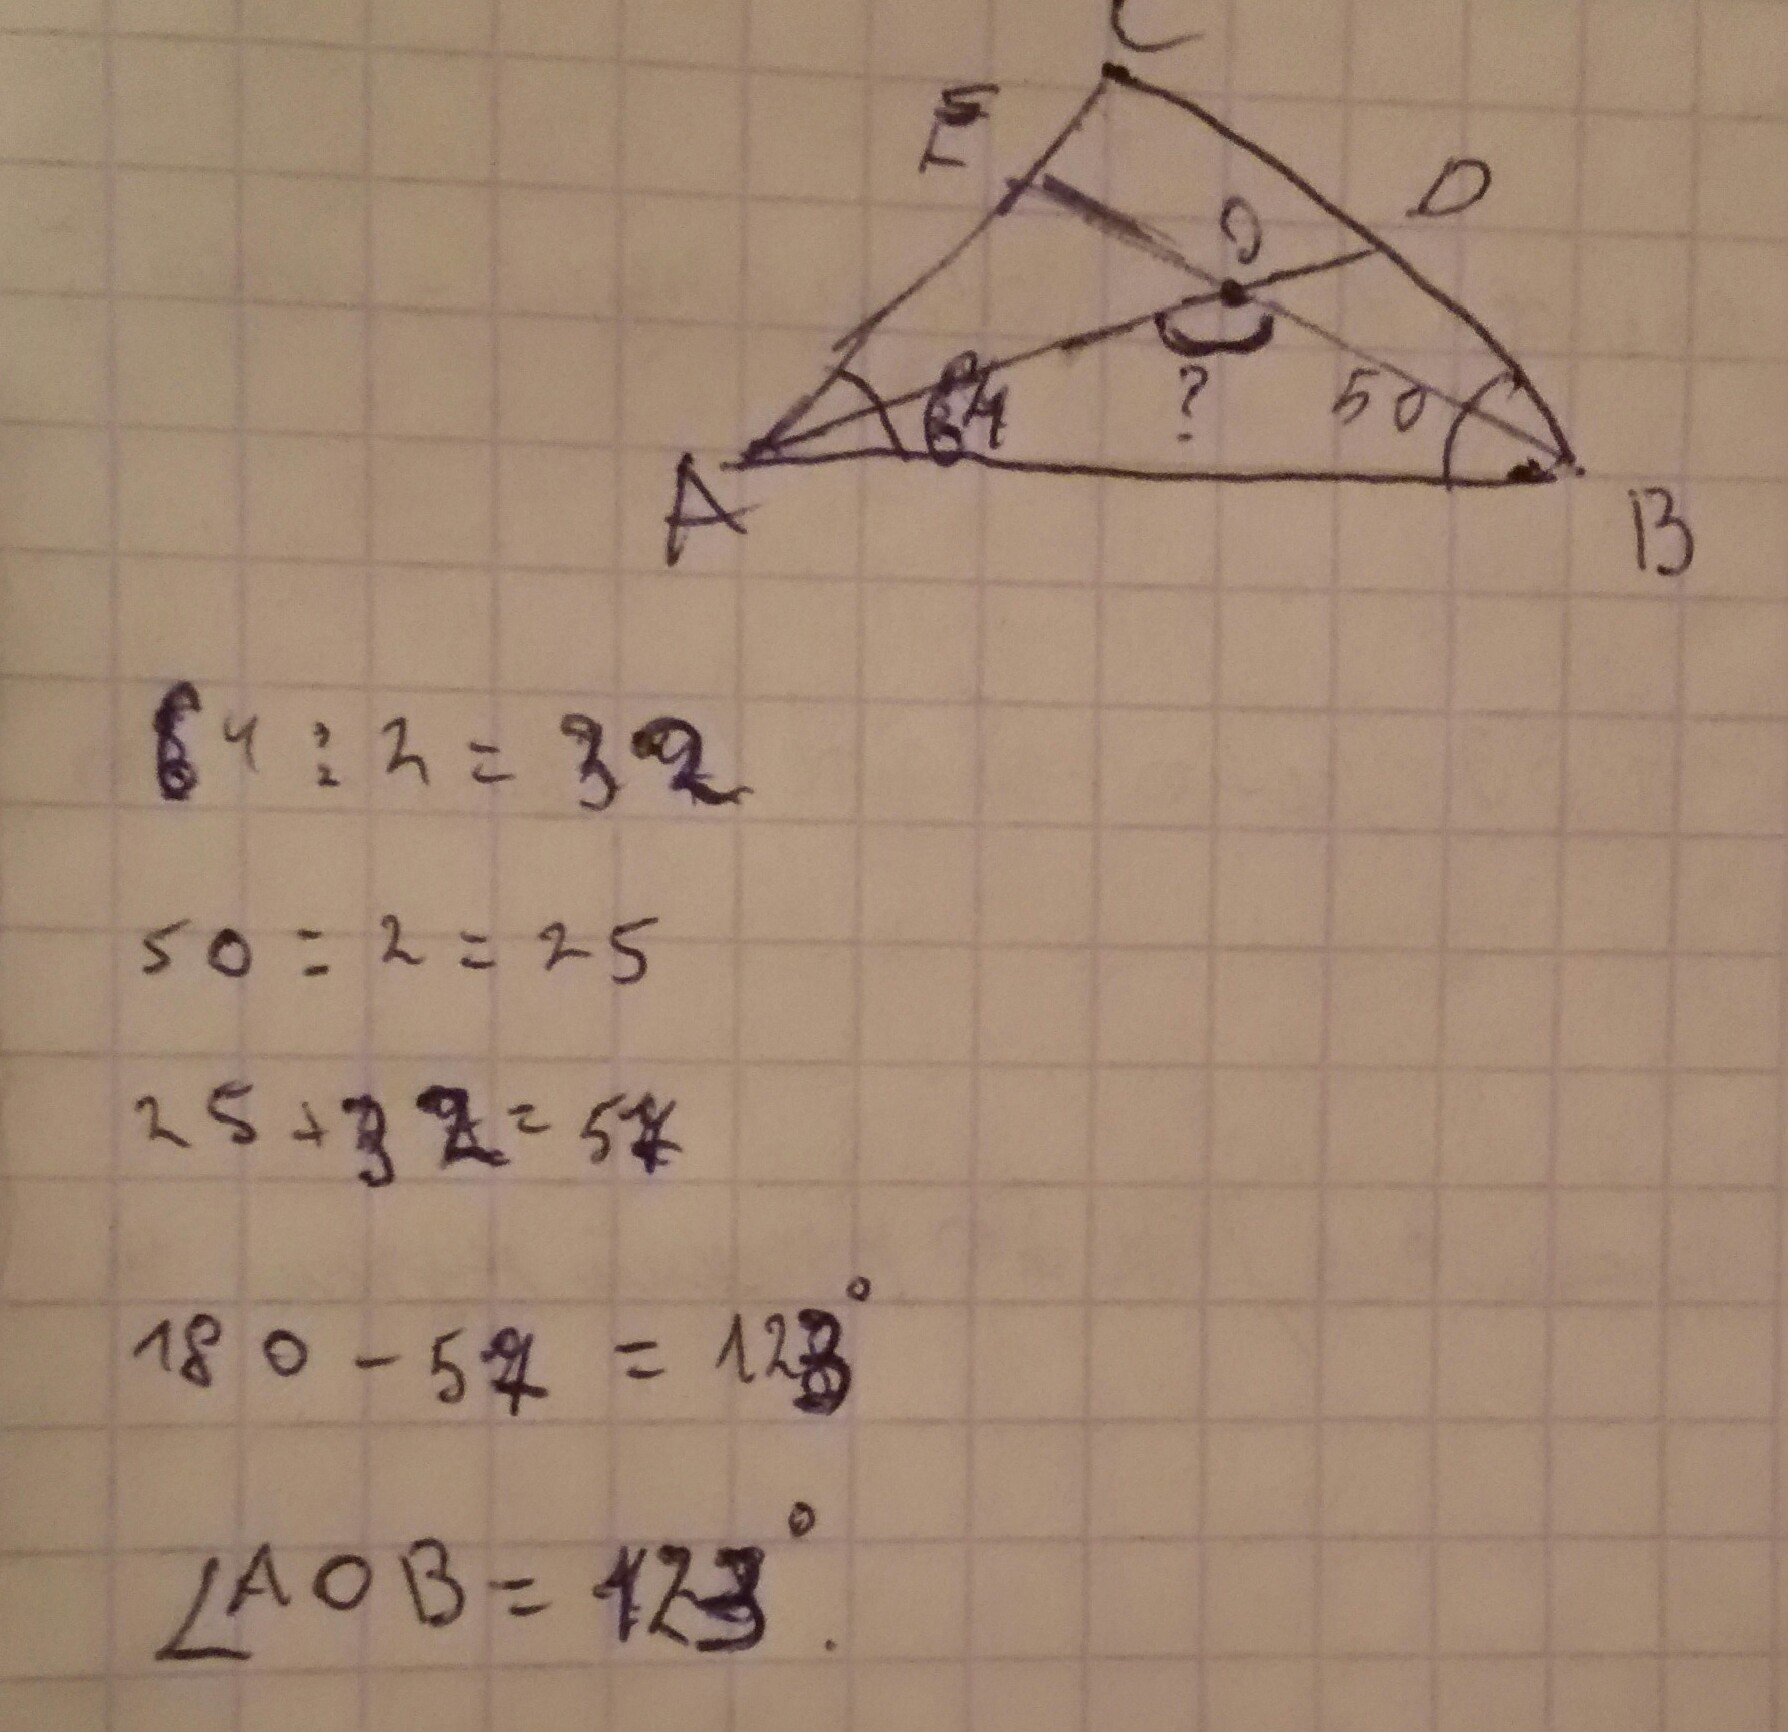 C
E
D
O
64
?
50
A
B
64 : 2 = 32
50 : 2 = 25
25 + 32 = 57
180 - 57 = 123°
∠AOB = 123°.